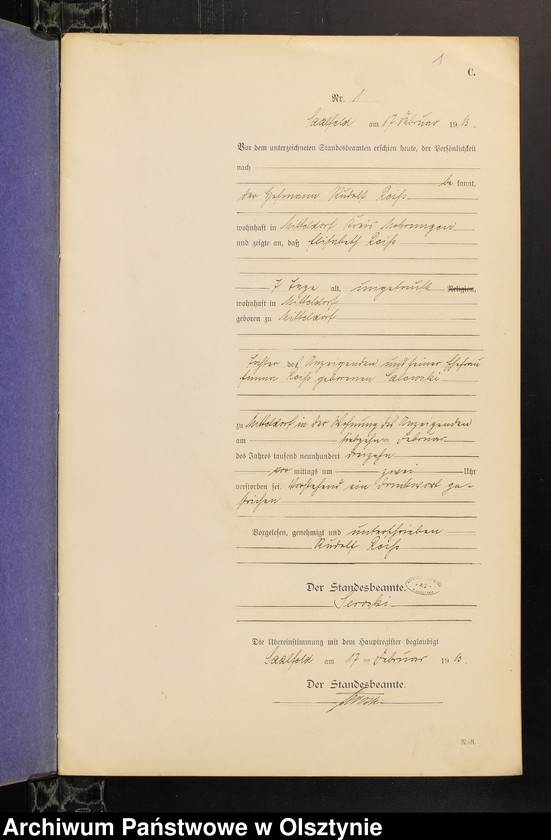 1
C.
Nr. 1
Saalfeld am 17 Februar 1913.
Vor dem unterzeichneten Standesbeamten erschien heute, der Persönlichkeit
nach
be kannt,
der Rudolf Reiß
wohnhaft in Mitteldorf Kreis Mohrungen
und zeigte an, daß Elisabeth Reiß
7 Tage alt, ungetauft Religion,
wohnhaft in Mitteldorf
geboren zu Mitteldorf
Tochter des Anzeigenden und seiner Ehefrau
Emma Reiß geborenen
zu Mitteldorf in der Wohnung des Anzeigenden
am siebzehn Februar
des Jahres tausend neunhundert dreizehn
vor mittags um zwei Uhr
verstorben sei. Vorstehend ein Druckwort ge-
strichen
Vorgelesen, genehmigt und unterschrieben
Rudolf Reiß
Der Standesbeamte.
Die Übereinstimmung mit dem Hauptregister beglaubigt
Saalfeld am 17 ten Februar 1913.
Der Standesbeamte.
Archiwum Państwowe w Olsztynie